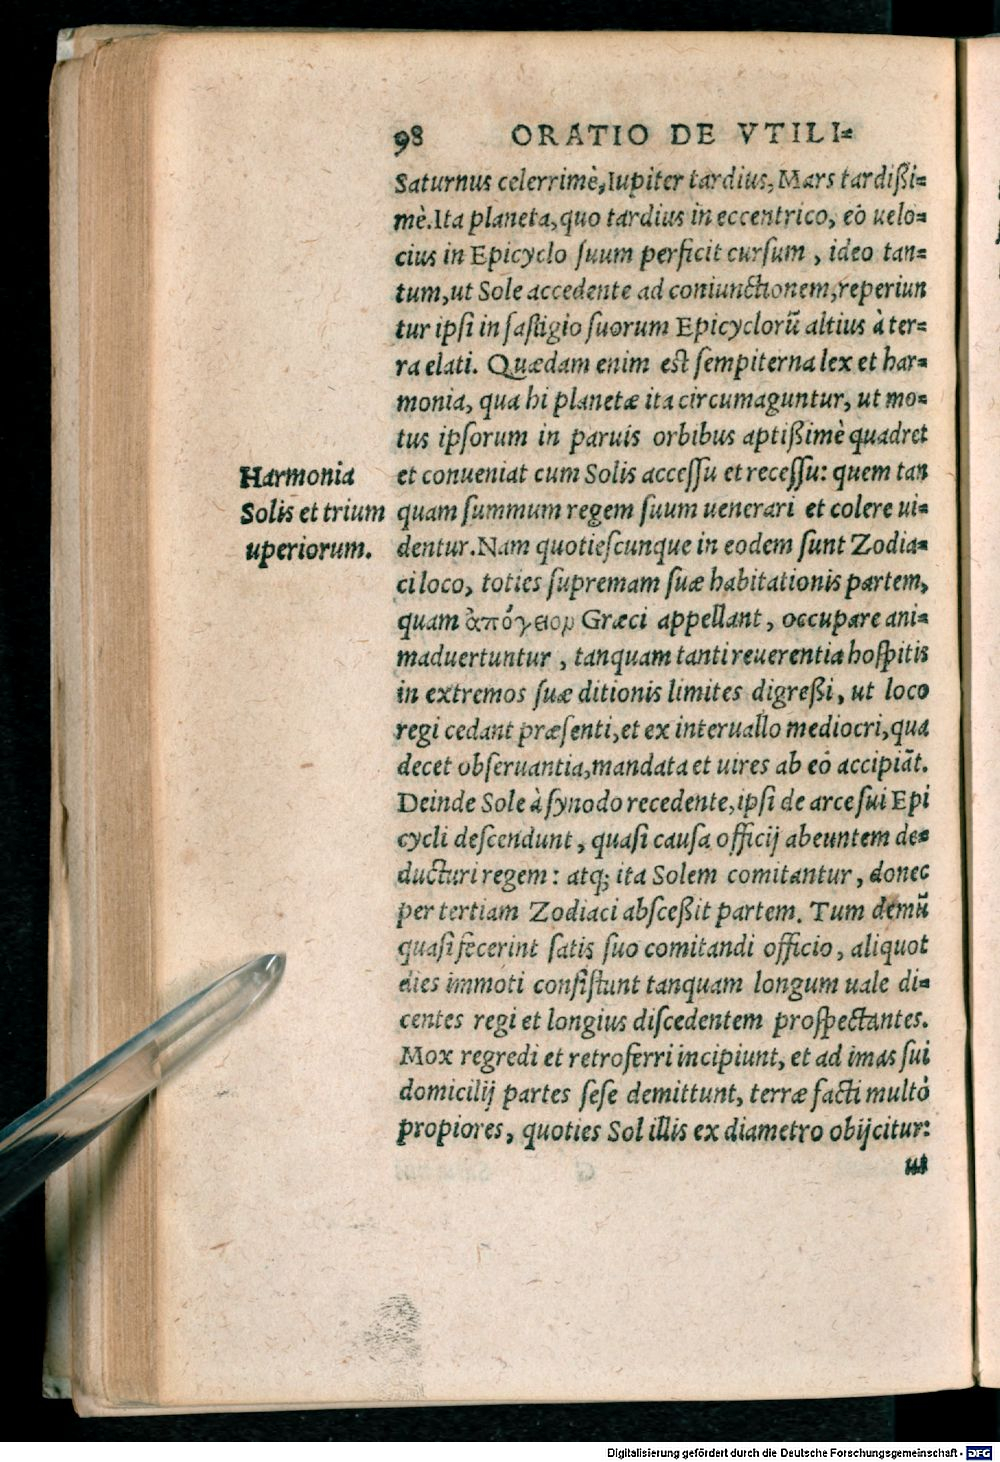 98 ORATIO DE VTILI-
Saturnus celerrimè, Iupiter tardius, Mars tardißi-
mè. Ita planeta, quo tardius in eccentrico, eò uelo-
cius in Epicyclo ſuum perficit curſum, ideo tan-
tum, ut Sole accedente ad coniunctionem, reperiun
tur ipſi in faſtigio ſuorum Epicyclorũ altius à ter-
ra elati. Quædam enim eſt ſempiterna lex et har-
monia, qua hi planetæ ita circumaguntur, ut mo-
tus ipſorum in paruis orbibus aptißimè quadret
et conueniat cum Solis acceſſu et receſſu: quem tan
quam ſummum regem ſuum uenerari et colere ui-
dentur. Nam quotieſcunque in eodem ſunt Zodia-
ci loco, toties ſupremam ſuæ habitationis partem,
quam ἀπόγειον Græci appellant, occupare ani-
maduertuntur, tanquam tanti reuerentia hoſpitis
in extremos ſuæ ditionis limites digreßi, ut loco
regi cedant præſenti, et ex interuallo mediocri, qua
decet obſeruantia, mandata et uires ab eò accipiãt.
Deinde Sole à ſynodo recedente, ipſi de arce ſui Epi
cycli deſcendunt, quaſi cauſa officij abeuntem de-
ducturi regem: atq; ita Solem comitantur, donec
per tertiam Zodiaci abſceßit partem. Tum demũ
quaſi fecerint ſatis ſuo comitandi officio, aliquot
dies immoti conſiſtunt tanquam longum uale di-
centes regi et longius diſcedentem proſpectantes.
Mox regredi et retroferri incipiunt, et ad imas ſui
domicilij partes ſeſe demittunt, terræ facti multò
propiores, quoties Sol illis ex diametro obijcitur:
ut
Harmonia
Solis et trium
uperiorum.
Digitalisierung gefördert durch die Deutsche Forschungsgemeinschaft - DFG